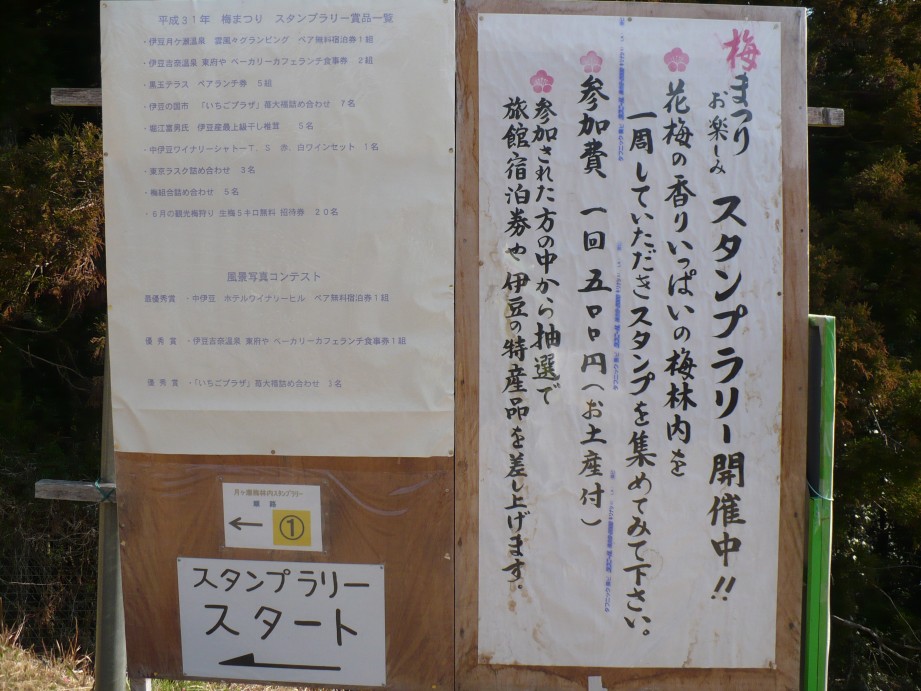 平成31年 梅まつり スタンプラリー賞品一覧
・伊豆月ケ瀬温泉 雲風々グランピング ペア無料宿泊券1組
・伊豆吉奈温泉 東府や ベーカリーカフェランチ食事券 2組
・黒玉テラス ペアランチ券 5組
・伊豆の国市 「いちごプラザ」苺大福詰め合わせ 7名
・堀江富男氏 伊豆産最上級干し椎茸 5名
・中伊豆ワイナリーシャトーT.S 赤、白ワインセット 1名
・東京ラスク詰め合わせ 3名
・梅組合詰め合わせ 5名
・6月の観光梅狩り 生梅5キロ無料 招待券 20名
風景写真コンテスト
最優秀賞 ・中伊豆 ホテルワイナリーヒル ペア無料宿泊券1組
優秀賞 ・伊豆吉奈温泉 東府や ベーカリーカフェランチ食事券1組
優秀賞 ・「いちごプラザ」苺大福詰め合わせ 3名
月ヶ瀬梅林内スタンプラリー
順路
← ①
スタンプラリー
スタート
梅まつり
お楽しみ スタンプラリー開催中!!
花梅の香りいっぱいの梅林内を
一周していただきスタンプを集めてみて下さい。
参加費 一回 五〇〇円(お土産付)
参加された方の中から抽選で
旅館宿泊券や伊豆の特産品を差し上げます.